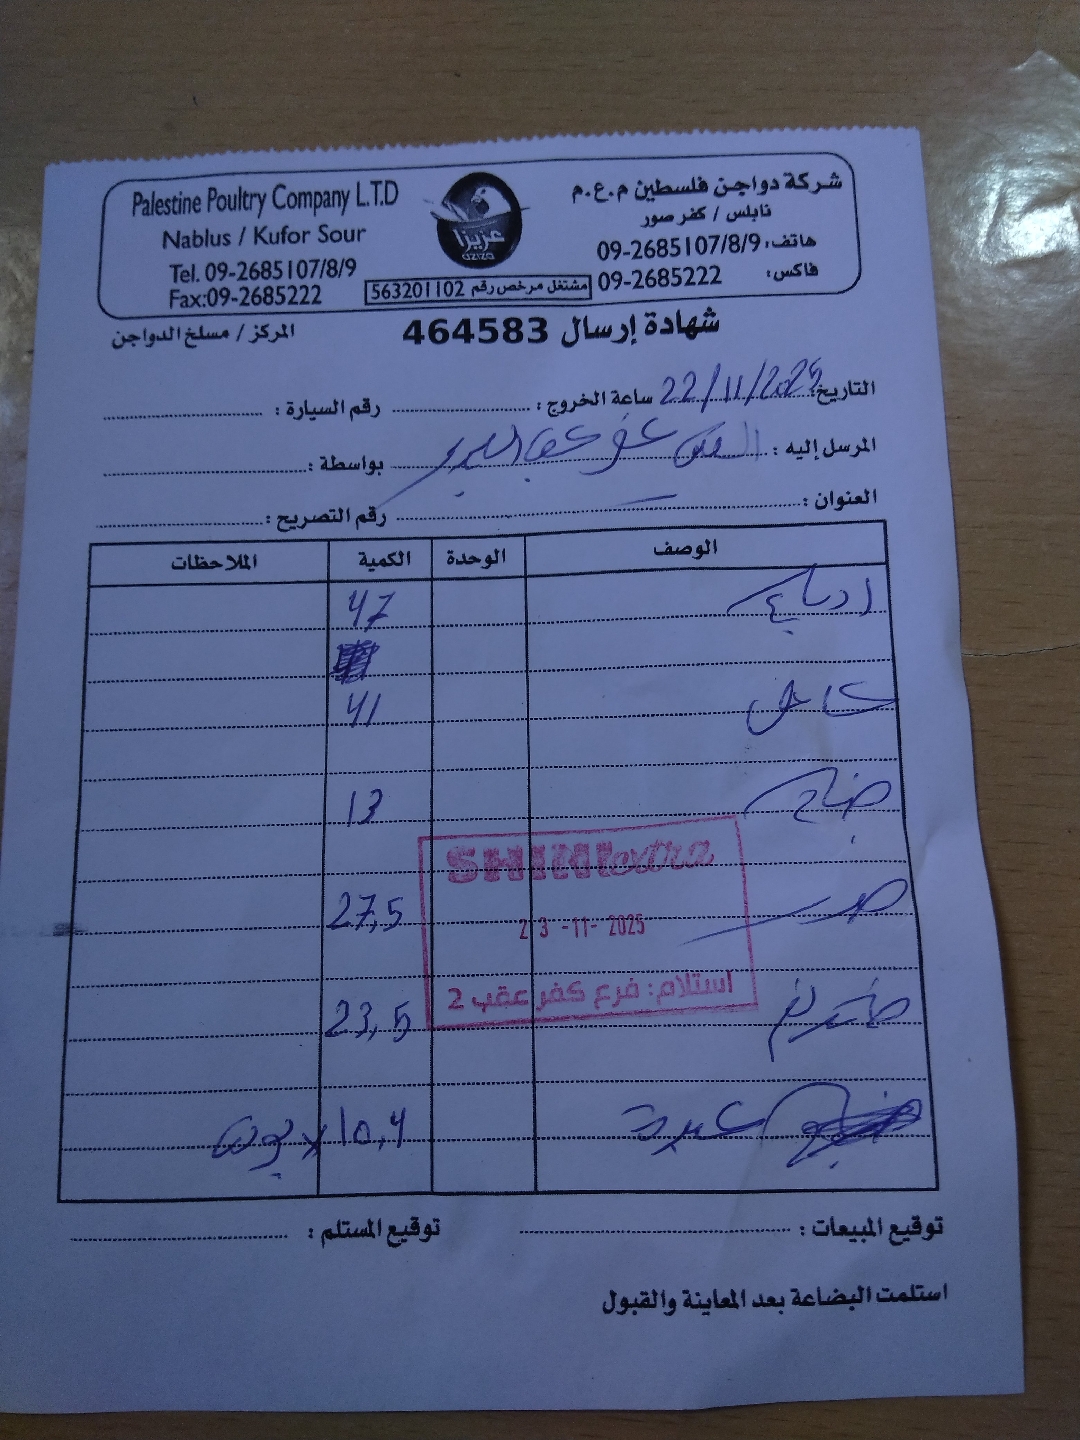 Palestine Poultry Company L.T.D
Nablus / Kufor Sour
Tel. 09-2685107/8/9
Fax:09-2685222
عزيزا
aziza
مشتغل مرخص رقم 563201102
شركة دواجن فلسطين م.ع.م
نابلس / كفر صور
هاتف: 09-2685107/8/9
فاكس: 09-2685222
شهادة إرسال 464583
المركز / مسلخ الدواجن
التاريخ: 22/11/2025 ساعة الخروج: رقم السيارة:
المرسل إليه: بواسطة:
العنوان: رقم التصريح:
الوصف الوحدة الكمية الملاحظات
ارباع 47
كامل 41
جناح 13
صدر 27,5
23,5
10,4
SHINI extra
23 -11- 2025
استلام: فرع كفر عقب 2
توقيع المبيعات: توقيع المستلم:
استلمت البضاعة بعد المعاينة والقبول